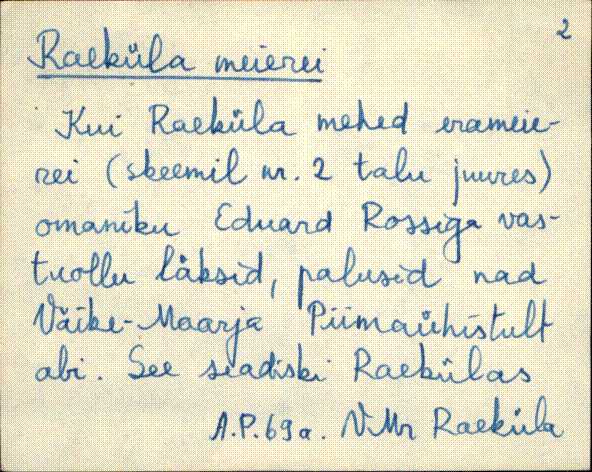 2
Raeküla meierei
Kui Raeküla mehed erameie-
rei (skeemil nr. 2 talu juures)
omaniku Eduard Rossiga vas-
tuollu läksid, palusid nad
Väike-Maarja Piimaühistult
abi. See seadiski Raekülas
A.P. 69 a. V.Mr Raeküla